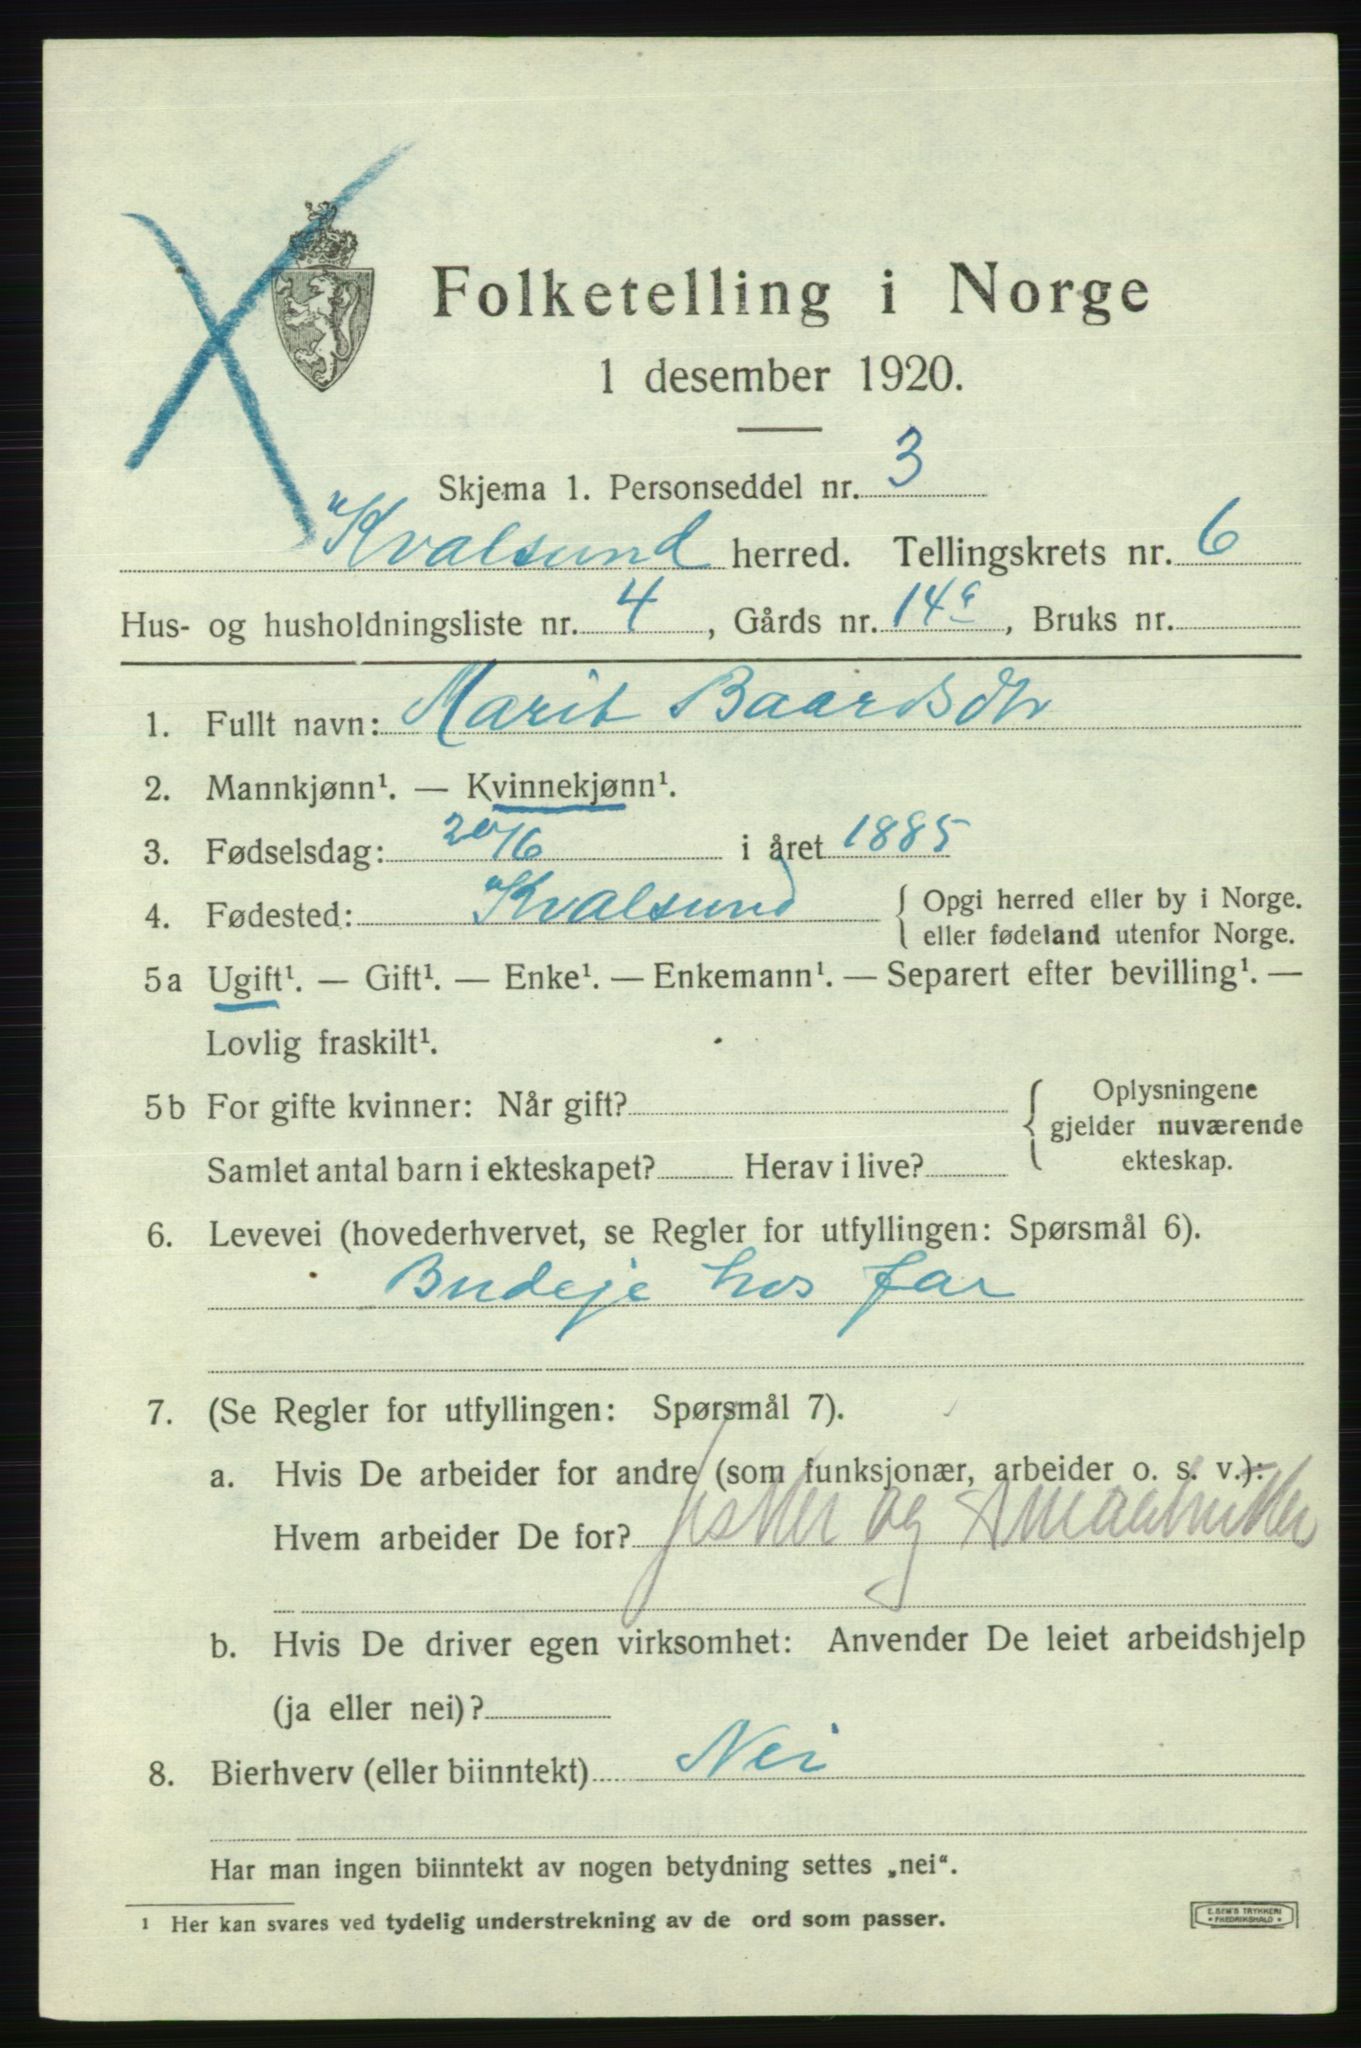 Folketelling i Norge
1 desember 1920.
Skjema 1. Personseddel nr. 3
Kvalsund herred. Tellingskrets nr. 6
Hus- og husholdningsliste nr. 4, Gårds nr. 14a, Bruks nr.
1. Fullt navn: Marit Baardsdtr
2. Mannkjønn¹. — Kvinnekjønn¹.
3. Fødselsdag: 20/6 i året 1885
4. Fødested: Kvalsund { Opgi herred eller by i Norge.
eller fødeland utenfor Norge.
5a Ugift¹. — Gift¹. — Enke¹. — Enkemann¹. — Separert efter bevilling¹. —
Lovlig fraskilt¹.
5b For gifte kvinner: Når gift? { Oplysningene
gjelder nuværende
Samlet antal barn i ekteskapet? Herav i live? ekteskap.
6. Levevei (hovederhvervet, se Regler for utfyllingen: Spørsmål 6).
Budeje hos far
7. (Se Regler for utfyllingen: Spørsmål 7).
a. Hvis De arbeider for andre (som funksjonær, arbeider o. s. v.):
Hvem arbeider De for? fisker og smaabruker
b. Hvis De driver egen virksomhet: Anvender De leiet arbeidshjelp
(ja eller nei)?
8. Bierhverv (eller biinntekt) Nei
Har man ingen biinntekt av nogen betydning settes „nei“.
¹ Her kan svares ved tydelig understrekning av de ord som passer.
E. SEM'S TRYKKERI
• FREDRIKSHALD •